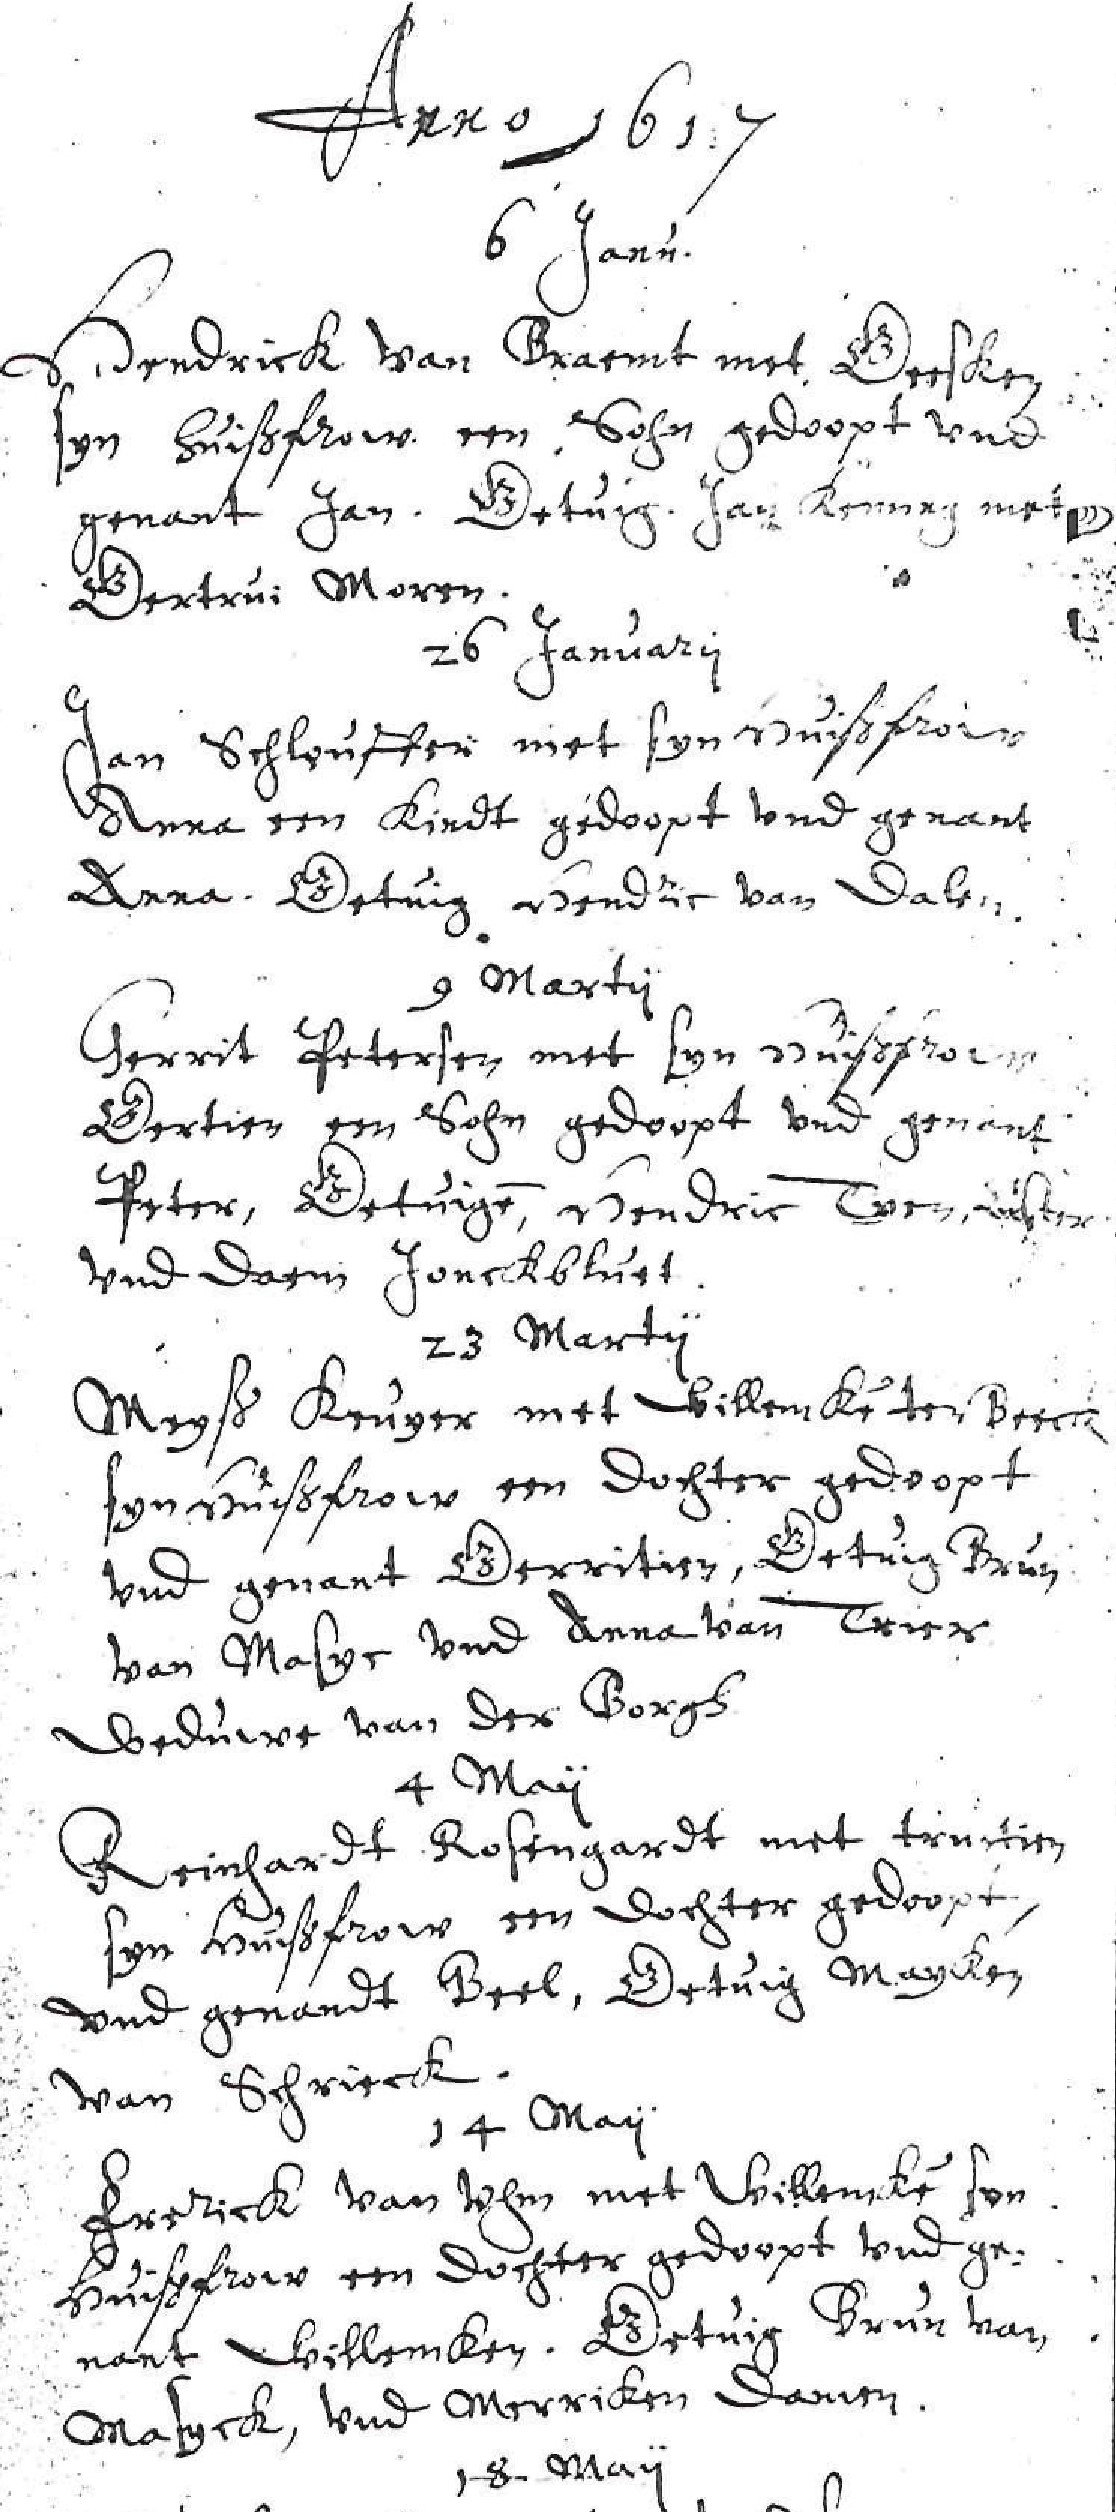 Anno 1617
6 Janu.
Hendrick van Braemt met Geesken
syn huißfrow een Sohn gedoopt vnd
genant Jan. Getuig. Jan met
Gertrui Moren.
26 Januarij
Jan Schleuffer met syn Huißfrow
Anna een Kindt gedoopt vnd genant
Anna. Getuig Hendric van Dalen.
9 Martij
Gerrit Petersen met syn Huißfrow
Gertien een Sohn gedoopt vnd genant
Peter, Getuigē, Hendric Tyen,
vnd Daem Jonckbluet.
23 Martij
Meyß Keuyer met Willemkē ter Beeck
syn Huißfrow een Dochter gedoopt
vnd genant Gerritien, Getuig Brun
van Masyc vnd Anna van Trier
Weduwe van der Borgh
4 Maij
Reinhardt Rosengardt met
syn Huißfrow een Dochter gedoopt,
vnd genandt Beel, Getuig Mayken
van Schrieck.
14 Maij
Frerick van Vhm met Willemkē syn
Huißfrow een Dochter gedoopt vnd ge:
nant Willemken. Getuig Brun van
Masyck, vnd Merriken Damen.
18 Maij